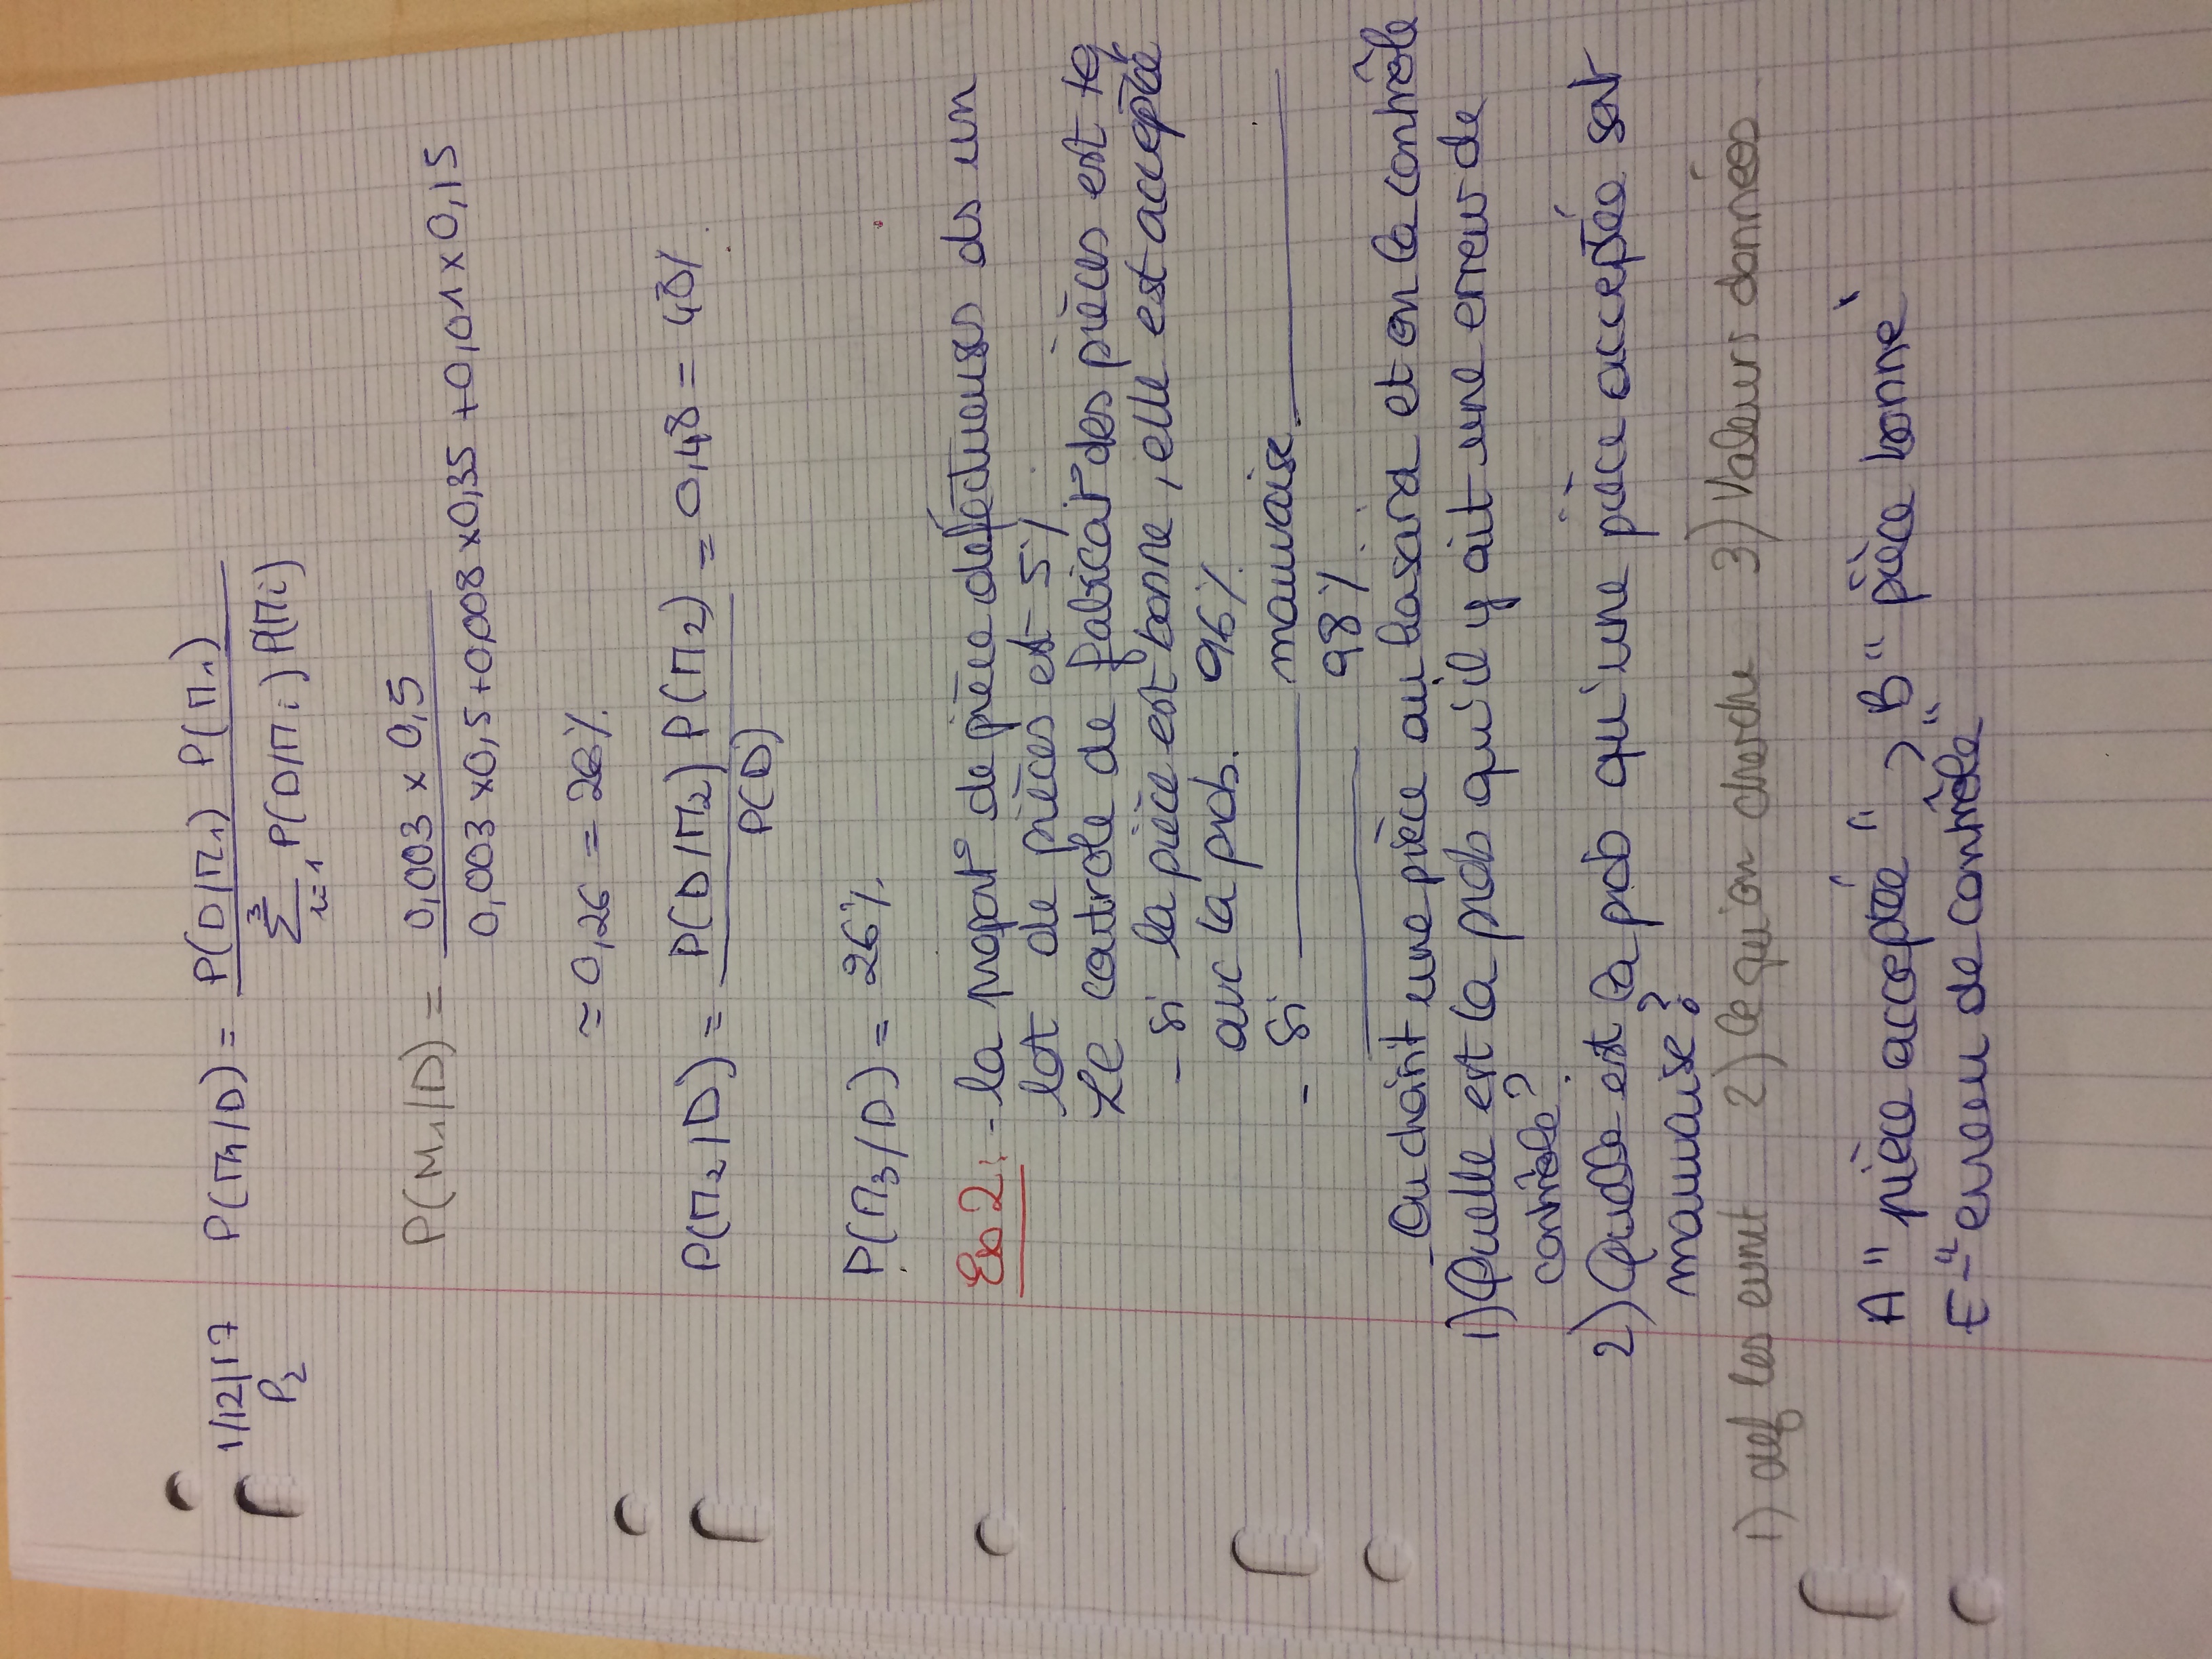 1/12/17
P2
P(M1/D) = P(D/M1) P(M1)
∑ i=1 3 P(D/Mi) P(Mi)
P(M1/D) = 0,003 x 0,5
0,003 x 0,5 + 0,008 x 0,35 + 0,01 x 0,15
≈ 0,26 = 26%.
P(M2/D) = P(D/M2) P(M2) = 0,48 = 48%.
P(D)
P(M3/D) = 26%.
Ex 2: - la proport° de pièce defectueuses ds un
lot de pièces est 5%.
Le controle de fabricat° des pièces est tq
- si la pièce est bonne, elle est acceptée
avec la prob. 96%.
- Si ——— mauvaise ———
——— 98%.
- On choisit une pièce au hasard et on la contrôle
1) Quelle est la prob qu'il y ait une erreur de
contrôle?
2) Quelle est la prob qu'une pièce acceptée soit
mauvaise?
1) def les evnmt 2) Ce qu'on cherche 3) Valeurs données
A "pièce acceptée", B "pièce bonne"
E - "erreur de contrôle"